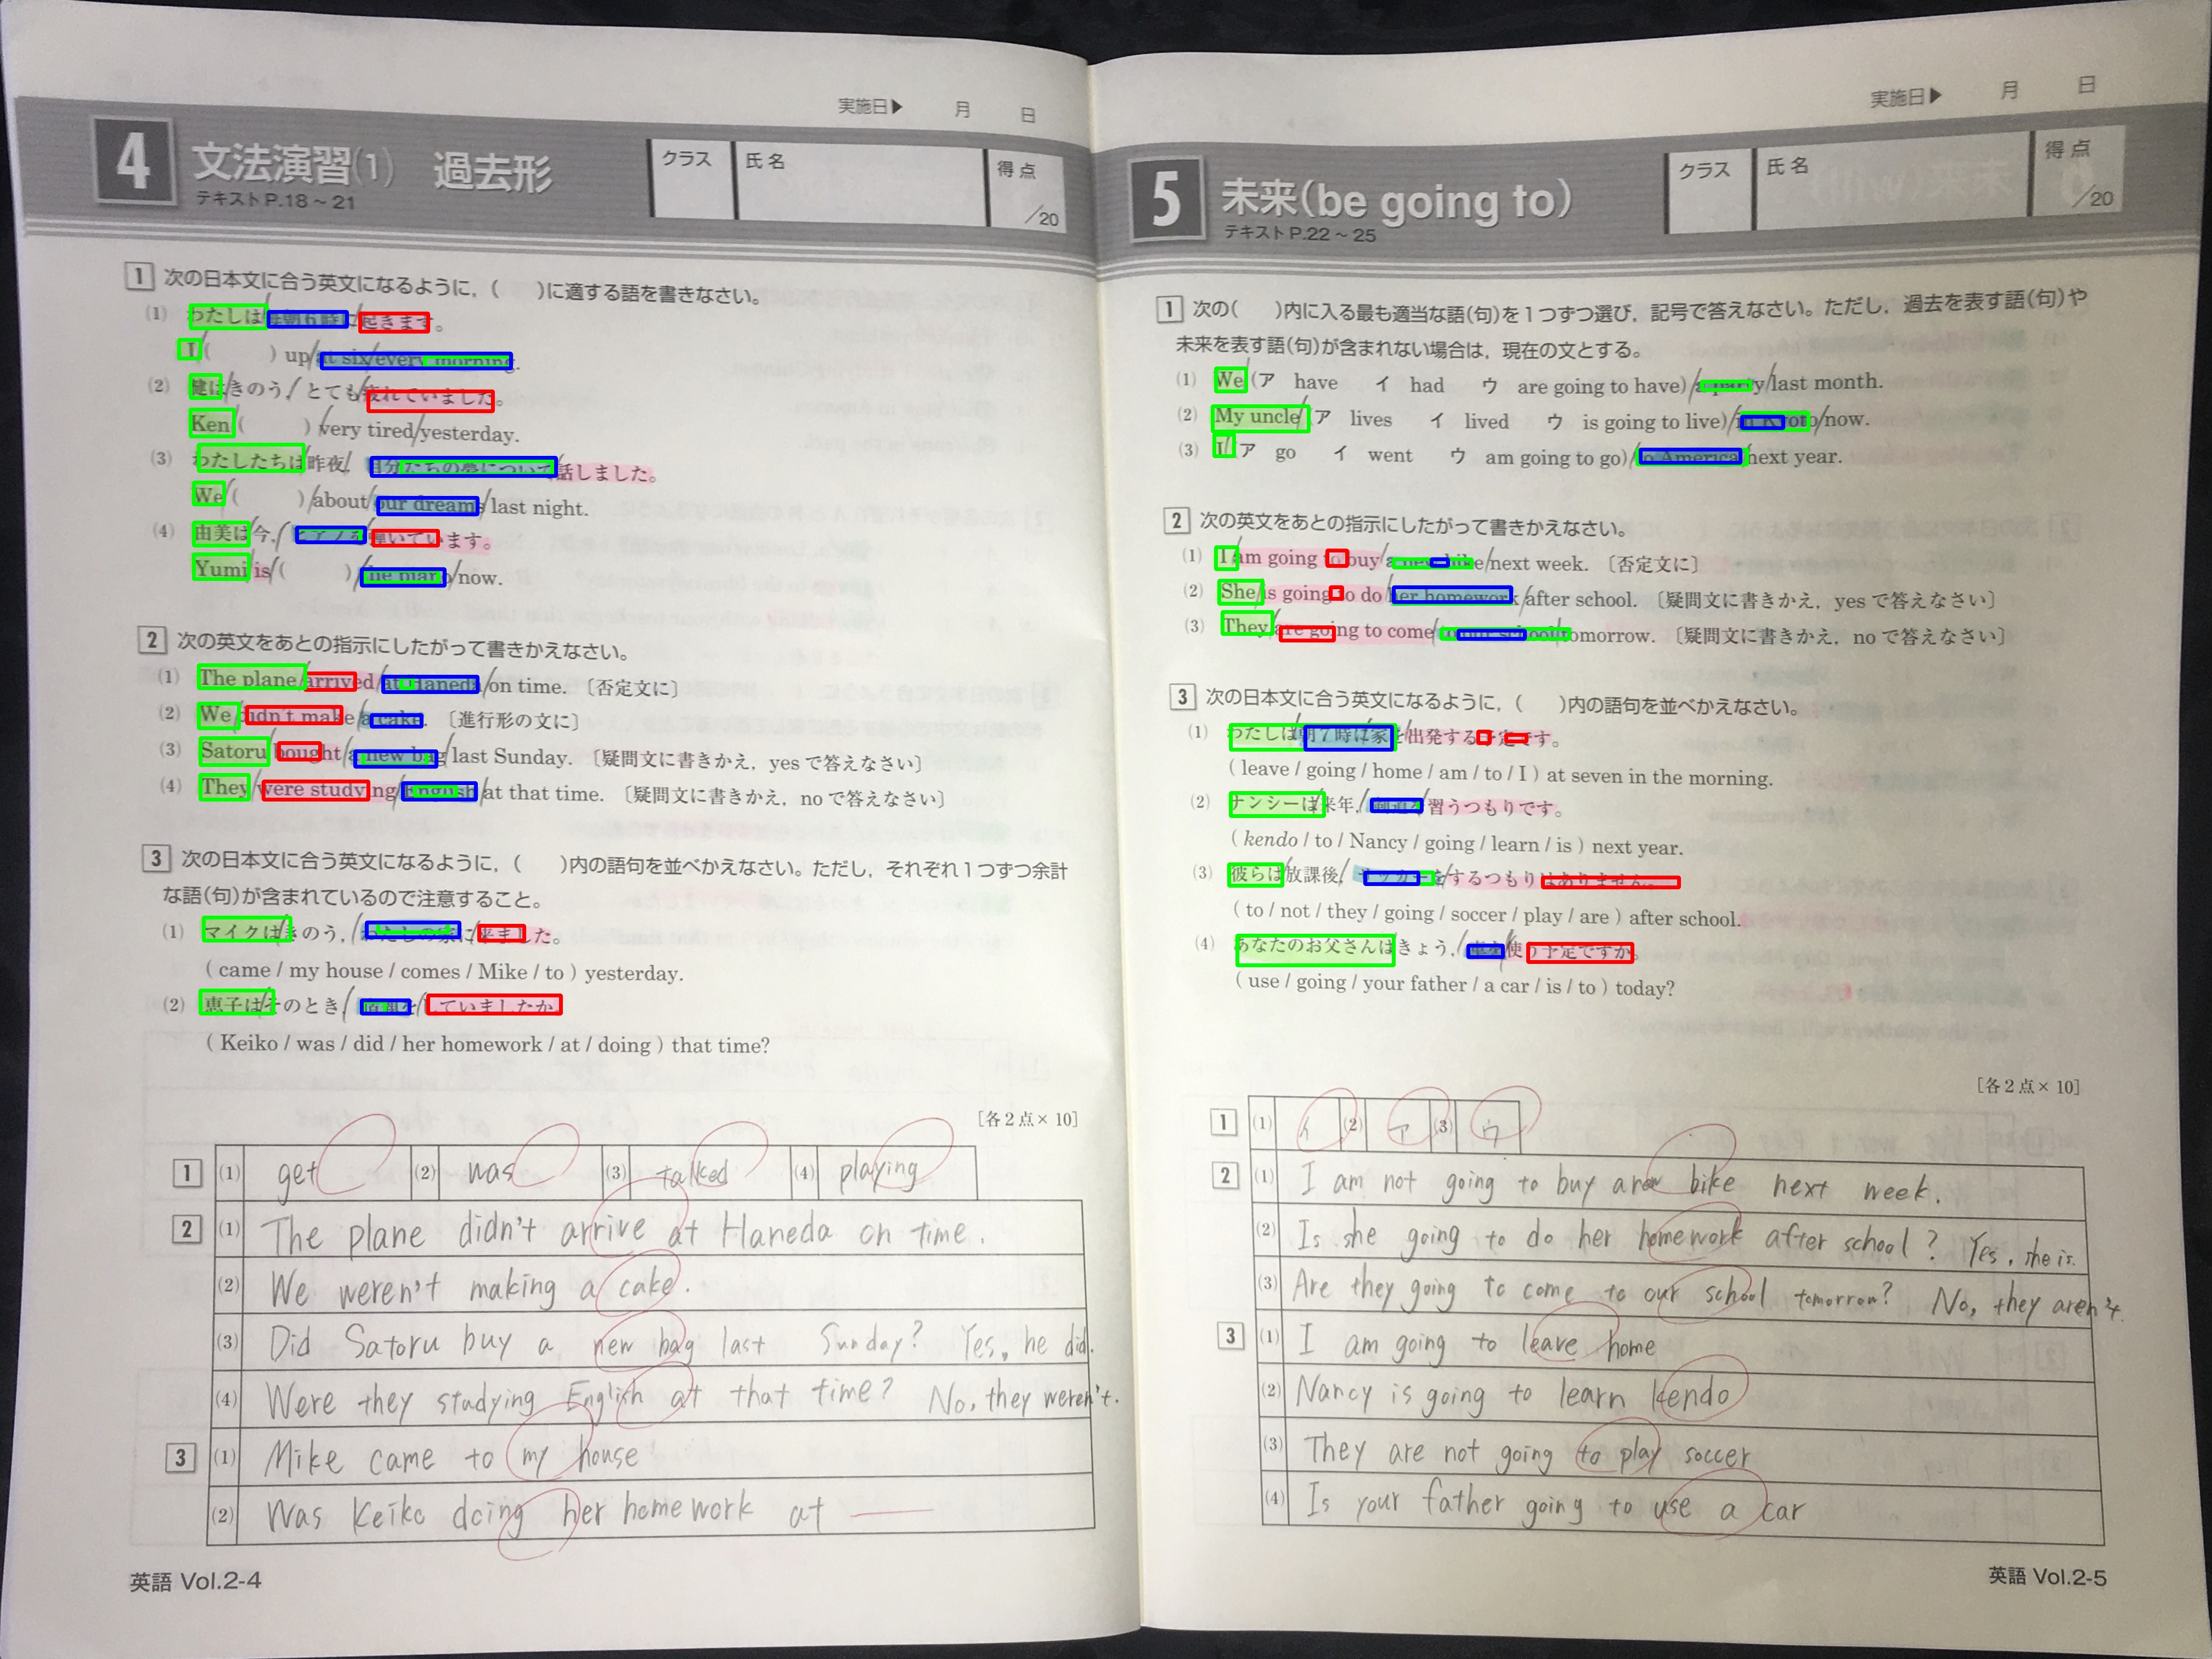 実施日▶ 月 日
4 文法演習(1) 過去形
テキストP.18～21
クラス 氏名 得点 /20
1 次の日本文に合う英文になるように，( )に適する語を書きなさい。
(1) わたしは/毎朝6時に/起きます。
I/( ) up/at six/every morning.
(2) 健は/きのう,/とても/疲れていました。
Ken/( )/very tired/yesterday.
(3) わたしたちは/昨夜,/自分たちの夢について/話しました。
We/( )/about/our dreams/last night.
(4) 由美は/今,/ピアノを/弾いています。
Yumi/is/( )/the piano/now.
2 次の英文をあとの指示にしたがって書きかえなさい。
(1) The plane/arrived/at Haneda/on time. 〔否定文に〕
(2) We/didn't make/a cake. 〔進行形の文に〕
(3) Satoru/bought/a new bag/last Sunday. 〔疑問文に書きかえ，yesで答えなさい〕
(4) They/were studying/English/at that time. 〔疑問文に書きかえ，noで答えなさい〕
3 次の日本文に合う英文になるように，( )内の語句を並べかえなさい。ただし，それぞれ1つずつ余計
な語(句)が含まれているので注意すること。
(1) マイクは/きのう,/わたしの家に/来ました。
( came / my house / comes / Mike / to ) yesterday.
(2) 恵子は/そのとき,/宿題を/していましたか。
( Keiko / was / did / her homework / at / doing ) that time?
[各2点×10]
1 (1) get (2) was (3) talked (4) playing
2 (1) The plane didn't arrive at Haneda on time.
(2) We weren't making a cake.
(3) Did Satoru buy a new bag last Sunday? Yes, he did.
(4) Were they studying English at that time? No, they weren't.
3 (1) Mike came to my house
(2) Was Keiko doing her homework at
英語 Vol.2-4
実施日▶ 月 日
5 未来(be going to)
テキストP.22～25
クラス 氏名 得点 /20
1 次の( )内に入る最も適当な語(句)を1つずつ選び，記号で答えなさい。ただし，過去を表す語(句)や
未来を表す語(句)が含まれない場合は，現在の文とする。
(1) We (ア have イ had ウ are going to have)/a party/last month.
(2) My uncle/(ア lives イ lived ウ is going to live)/in Kyoto/now.
(3) I/(ア go イ went ウ am going to go)/to America/next year.
2 次の英文をあとの指示にしたがって書きかえなさい。
(1) I/am going to buy/a new bike/next week. 〔否定文に〕
(2) She/is going to do/her homework/after school. 〔疑問文に書きかえ，yesで答えなさい〕
(3) They/are going to come/to our school/tomorrow. 〔疑問文に書きかえ，noで答えなさい〕
3 次の日本文に合う英文になるように，( )内の語句を並べかえなさい。
(1) わたしは/朝7時に/家を/出発する予定です。
( leave / going / home / am / to / I ) at seven in the morning.
(2) ナンシーは/来年,/剣道を/習うつもりです。
( kendo / to / Nancy / going / learn / is ) next year.
(3) 彼らは/放課後/サッカーを/するつもりはありません。
( to / not / they / going / soccer / play / are ) after school.
(4) あなたのお父さんは/きょう,/車を/使う予定ですか。
( use / going / your father / a car / is / to ) today?
[各2点×10]
1 (1) イ (2) ア (3) ウ
2 (1) I am not going to buy a new bike next week.
(2) Is she going to do her homework after school? Yes, she is.
(3) Are they going to come to our school tomorrow? No, they aren't.
3 (1) I am going to leave home
(2) Nancy is going to learn kendo
(3) They are not going to play soccer
(4) Is your father going to use a car
英語 Vol.2-5